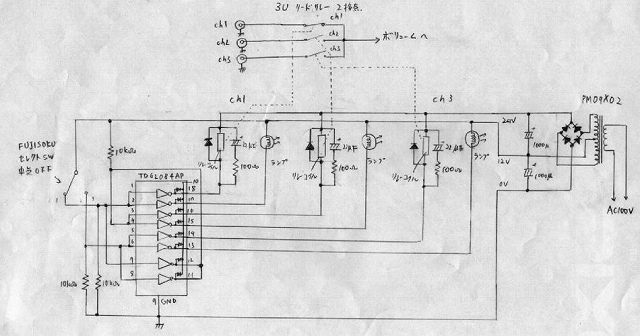 3V リードリレー 2接点
ch1
ch1
ch2
ch2
ch3
ch3
ボリュームへ
ch1
ch3
24V
12V
0V
1000μ
1000μ
AC100V
FUJISOKU
セレクトSW
中点OFF
10kΩ
リレーコイル
100Ω
ランプ
リレーコイル
22μF
100Ω
ランプ
リレーコイル
22μF
100Ω
ランプ
1
2
3
4
5
6
7
8
10
18
15
14
13
12
11
9 GND
10kΩ
10kΩ